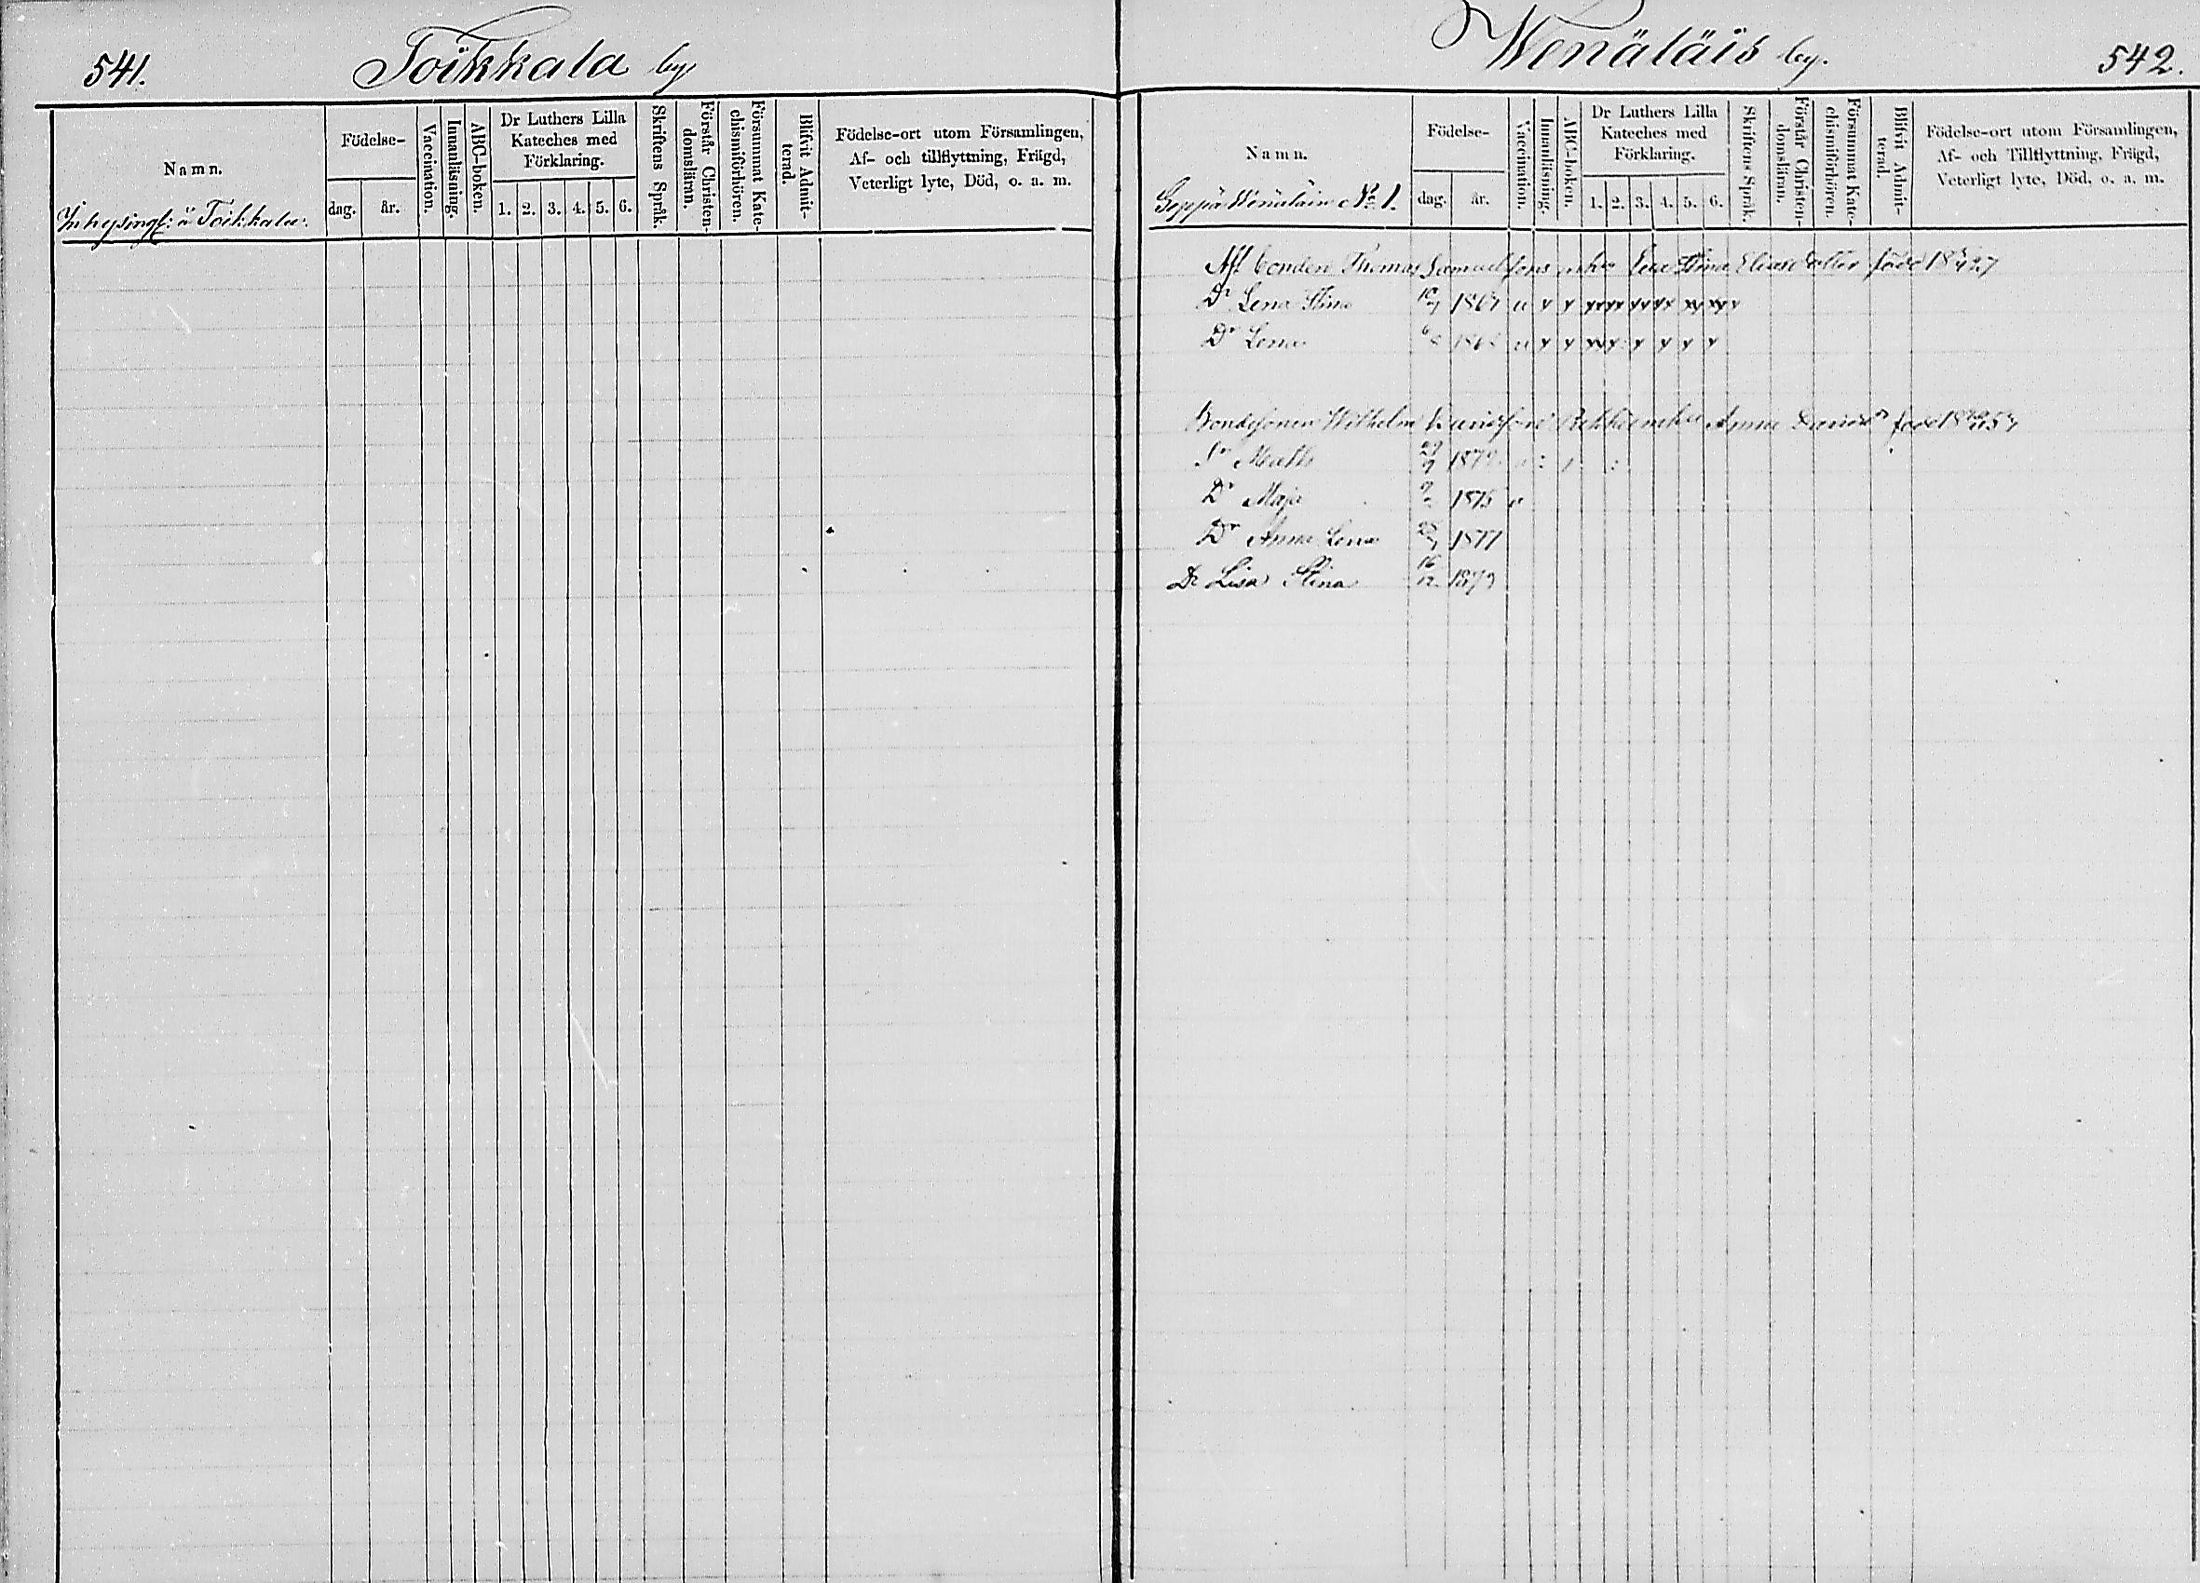 541.
Toikkala by
Namn.
Födelse-
dag.
år.
Vaccination.
Innanläsning.
ABC-boken.
Dr Luthers Lilla
Kateches med
Förklaring.
1. 2. 3. 4. 5. 6.
Skriftens Språk.
Förstår Christen-
domsläran.
Försummat Kate-
chismiförhören.
Blifvit Admit-
terad.
Födelse-ort utom Församlingen,
Af- och tillflyttning, Frägd,
Veterligt lyte, Död, o. a. m.
Inhysingf: å Toikkala:
Wenäläis by.
542.
Namn.
Födelse-
dag.
år.
Vaccination.
Innanläsning.
ABC-boken.
Dr Luthers Lilla
Kateches med
Förklaring.
1. 2. 3. 4. 5. 6.
Skriftens Språk.
Förstår Christen-
domsläran.
Försummat Kate-
chismiförhören.
Blifvit Admit-
terad.
Födelse-ort utom Församlingen,
Af- och Tillflyttning, Frägd,
Veterligt lyte, Död, o. a. m.
Seppä Wenäläin No 1.
Aft bonden Thomas Samuelsons enka Eva Stina Eliasdotter född
Dr Lena Stina
Dr Lena
Bondesonen Wilhelm enka Anna Davidsdr född
Sn Matts
Dr Maja 1875
Dr Anna Lena 1877
Dr Lisa Stina 16/12 1879